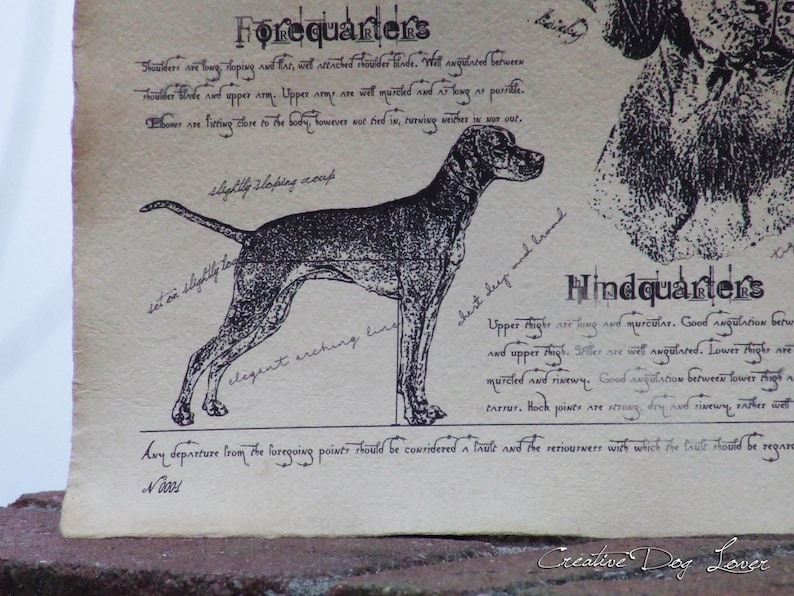 Forequarters
Shoulders are long, sloping and flat, well attached shoulder blade. Well angulated between
shoulder blade and upper arm. Upper arms are well muscled and as long as possible.
Elbows are fitting close to the body, however not tied in, turning neither in nor out.
slightly sloping croup
set on slightly low
elegant arching line
chest deep and broad
Hindquarters
Upper thighs are long and muscular. Good angulation betw
and upper thigh. Stifles are well angulated. Lower thighs are
muscled and sinewy. Good angulation between lower thigh a
tarsus. Hock joints are strong, dry and sinewy, rather well
Any departure from the foregoing points should be considered a fault and the seriousness with which the fault should be regar
N°0001
Creative Dog Lover